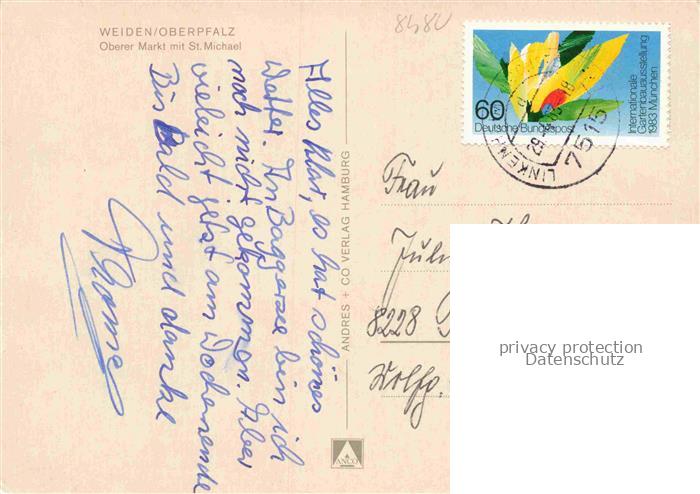 WEIDEN/OBERPFALZ
Oberer Markt mit St. Michael
8484
Alles klar, es hat schönes
Wetter. Im Baggersee bin ich
noch nicht gekommen. Aber
vieleicht jetzt am Wochenende
Bis Bald und danke
ANDRES + CO VERLAG HAMBURG
ANCO
60
Deutsche Bundespost
Internationale
Gartenbauausstellung
1983 München
LINKENH
29
7515
Frau
8228
Wolfg.
privacy protection
Datenschutz